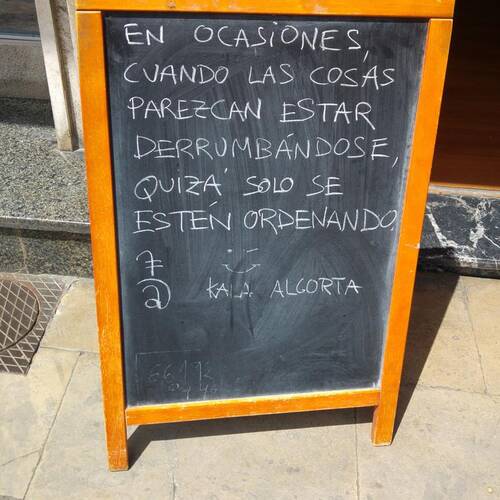 EN OCASIONES,
CUANDO LAS COSAS
PAREZCAN ESTAR
DERRUMBÁNDOSE,
QUIZÁ SOLO SE
ESTÉN ORDENANDO.
KALA ALGORTA